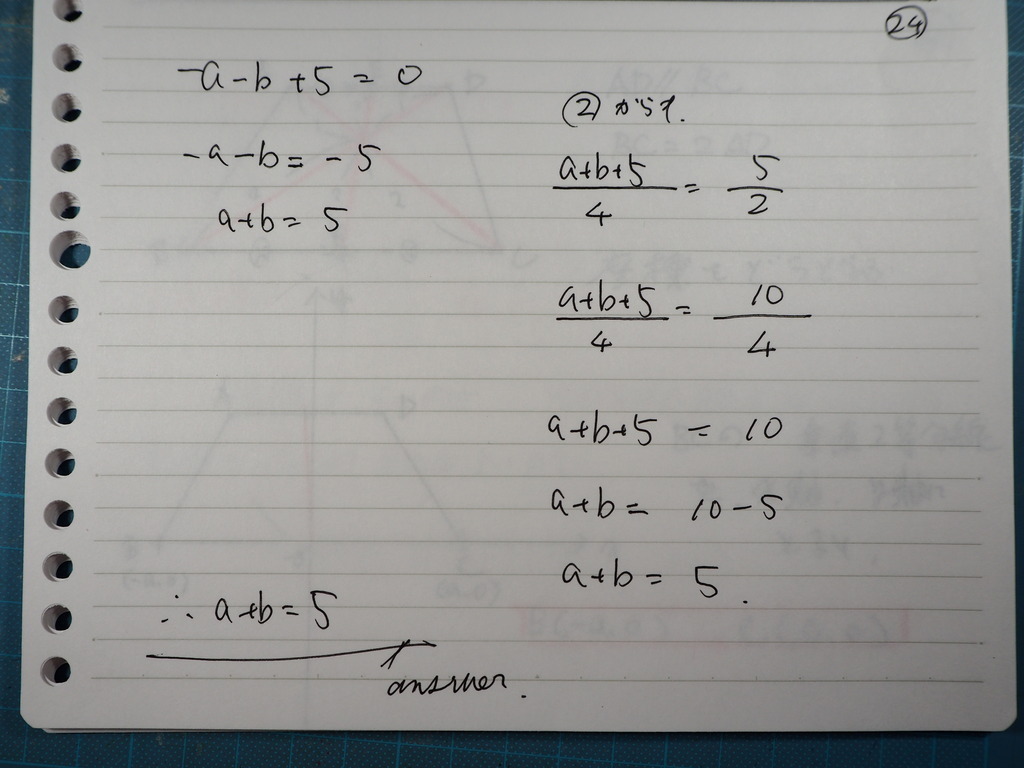 ㉔
-a-b+5=0
-a-b=-5
a+b=5
∴ a+b=5
answer.
② から
(a+b+5)/4 = 5/2
(a+b+5)/4 = 10/4
a+b+5 = 10
a+b= 10-5
a+b= 5.